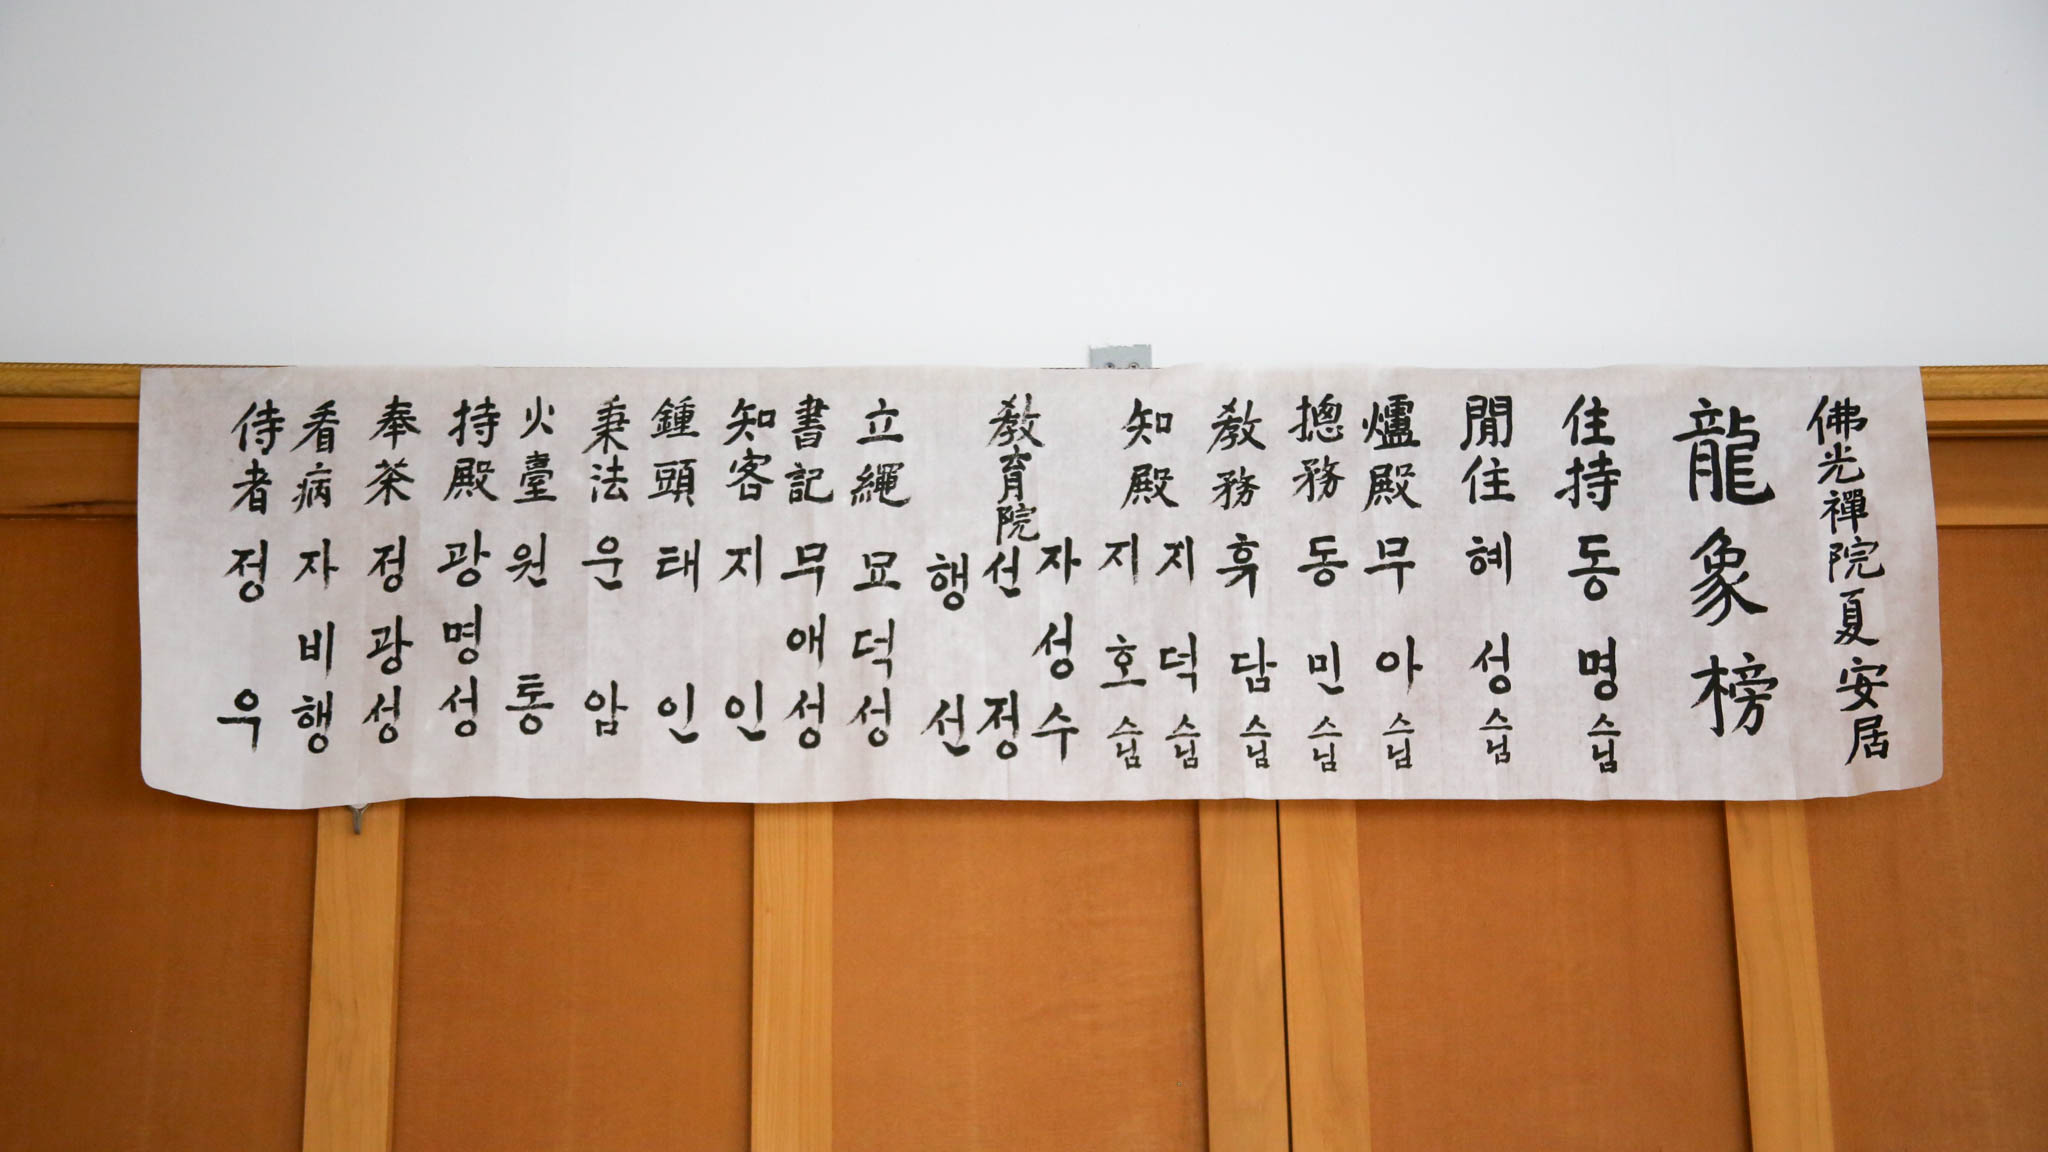 佛光禪院夏安居
龍象榜
住持 동명 스님
閒住 혜성 스님
爐殿 무아 스님
摠務 동민 스님
敎務 휴담 스님
知殿 지덕 스님
지호 스님
敎育院 자성수
선정
행선
立繩 묘덕성
書記 무애성
知客 지인
鍾頭 태인
秉法 운암
火臺 원통
持殿 광명성
奉茶 정광성
看病 자비행
侍者 정우